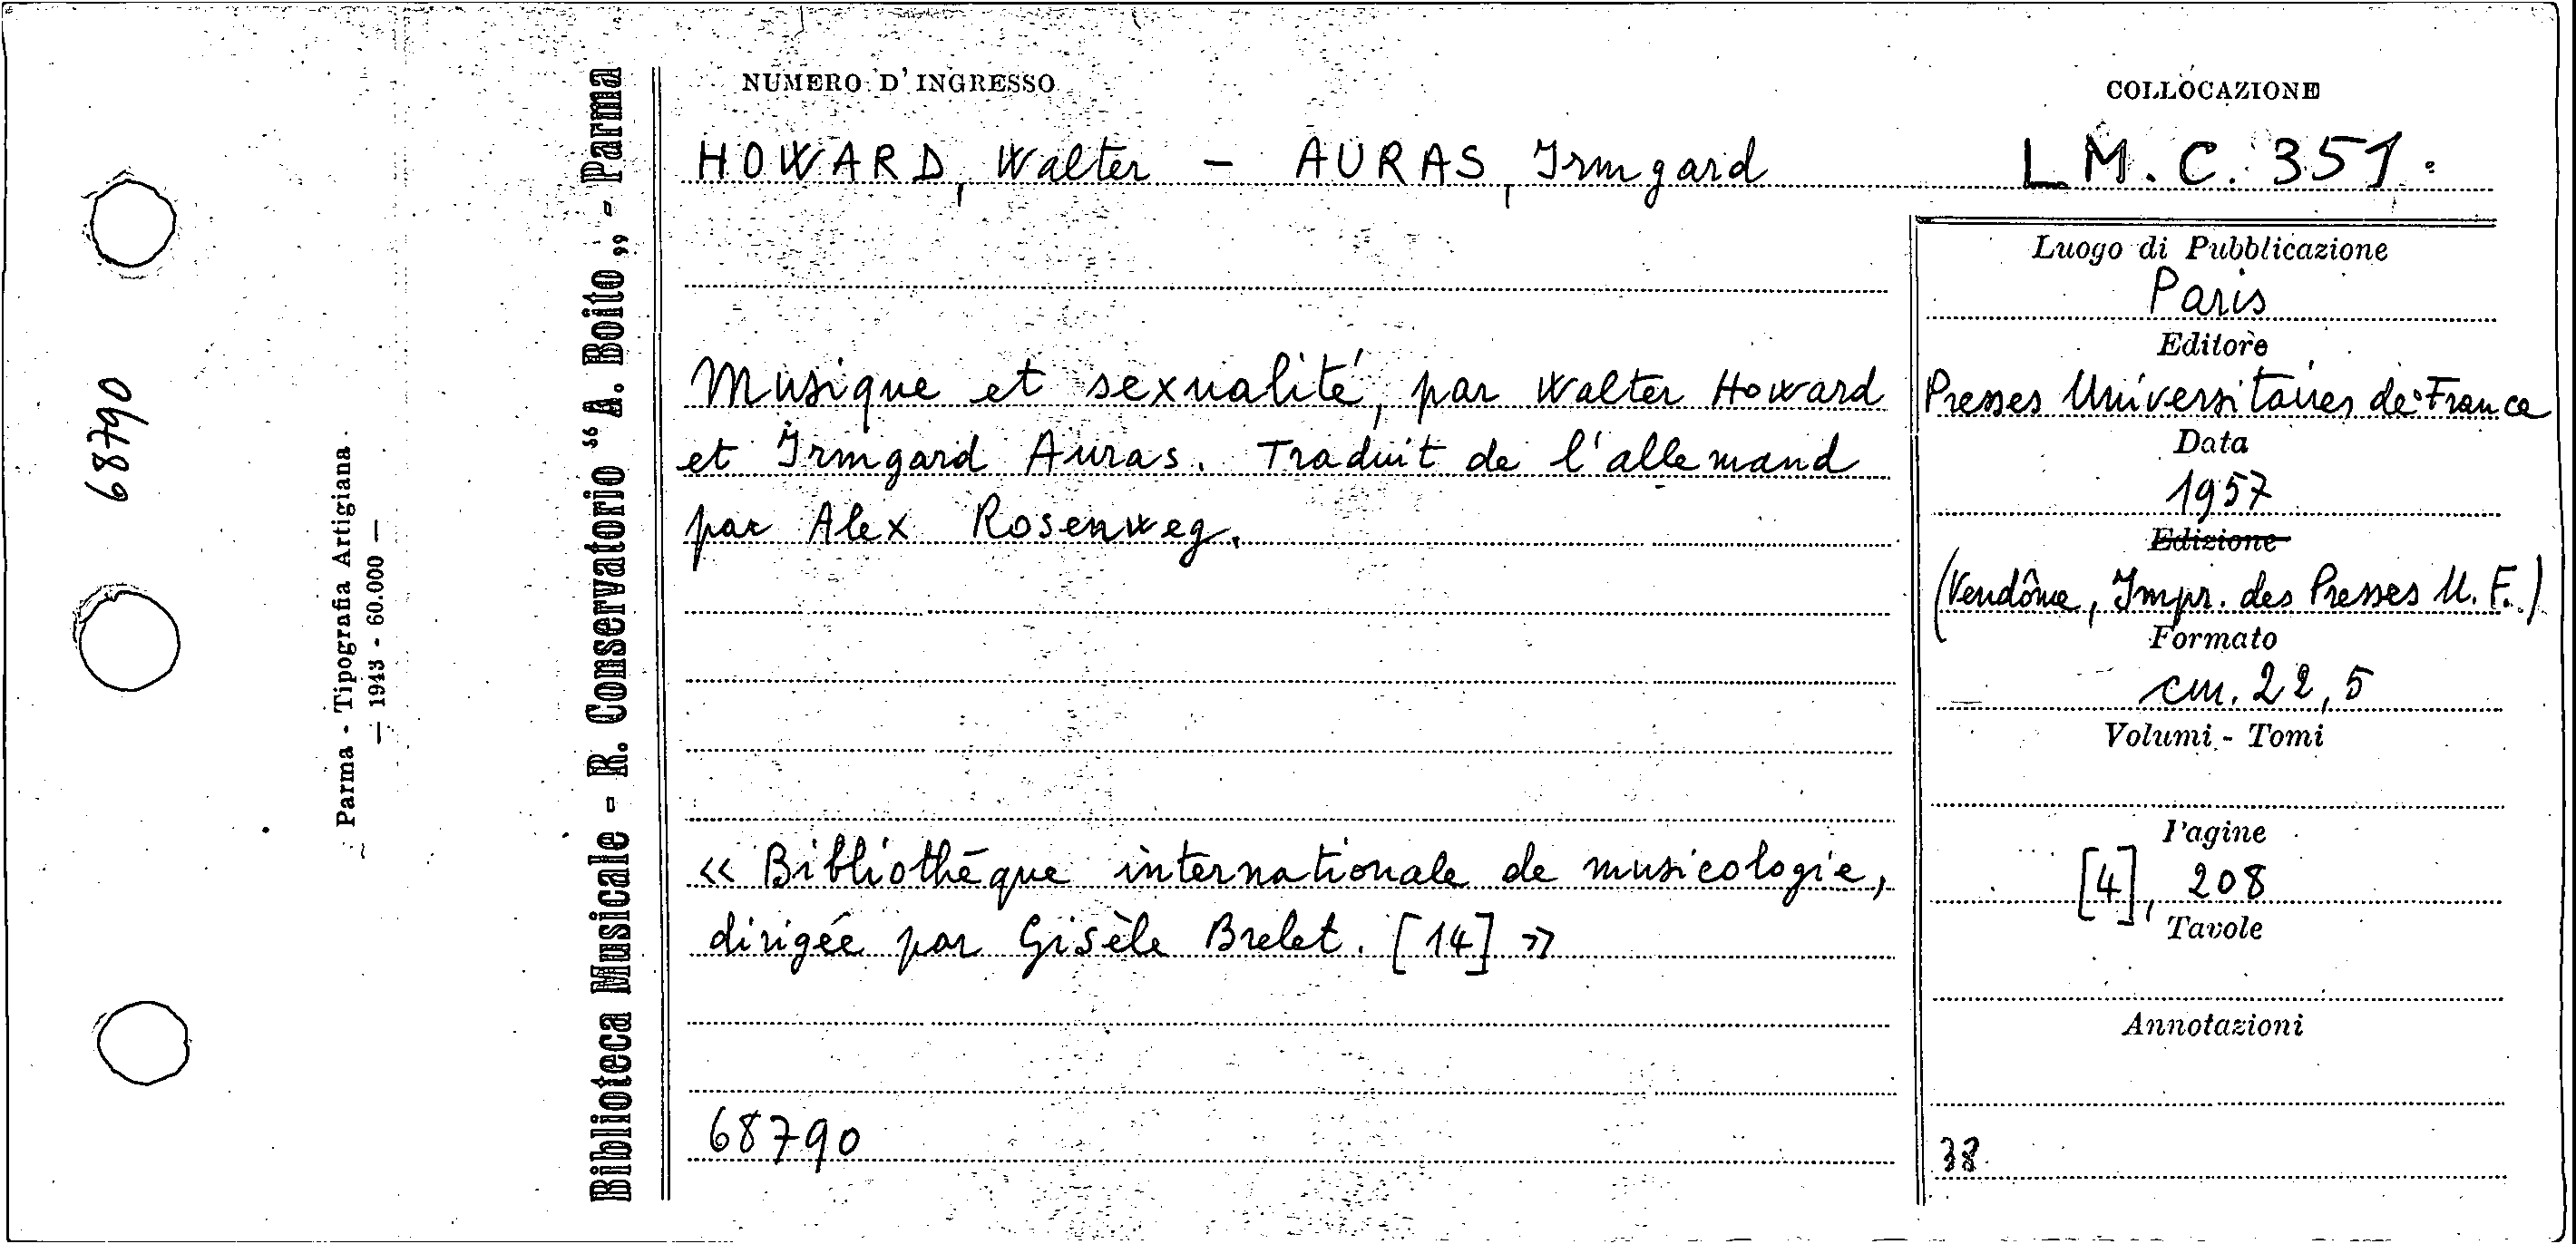 68790
Parma - Tipografia Artigiana
— 1943 - 60.000 —
Biblioteca Musicale - R. Conservatorio “A. Boito„ - Parma
NUMERO D'INGRESSO
COLLOCAZIONE
HOWARD, Walter - AURAS, Irmgard
L.M.C. 351.
Musique et sexualité, par Walter Howard
et Irmgard Auras. Traduit de l'allemand
par Alex Rosenweg.
« Bibliothèque internationale de musicologie,
dirigée par Gisèle Brelet. [14] »
68790
Luogo di Pubblicazione
Paris
Editore
Presses Universitaires de France
Data
1957
Edizione
(Vendôme, Impr. des Presses U. F.)
Formato
cm. 22,5
Volumi - Tomi
Pagine
[4], 208
Tavole
Annotazioni
38